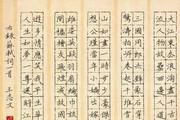 大江東去浪淘盡千古風
流人物故壘西邊人道是
三國周郎赤壁亂石
濤拍岸捲起千堆雪江
山如畫一時多少豪傑遙
想公瑾當年小喬初嫁了
雄姿英發羽扇綸巾談笑
間檣櫓灰飛煙滅故國神
遊多情應笑我早生華
人生如夢一尊還酹江月
右錄蘇軾詞一首